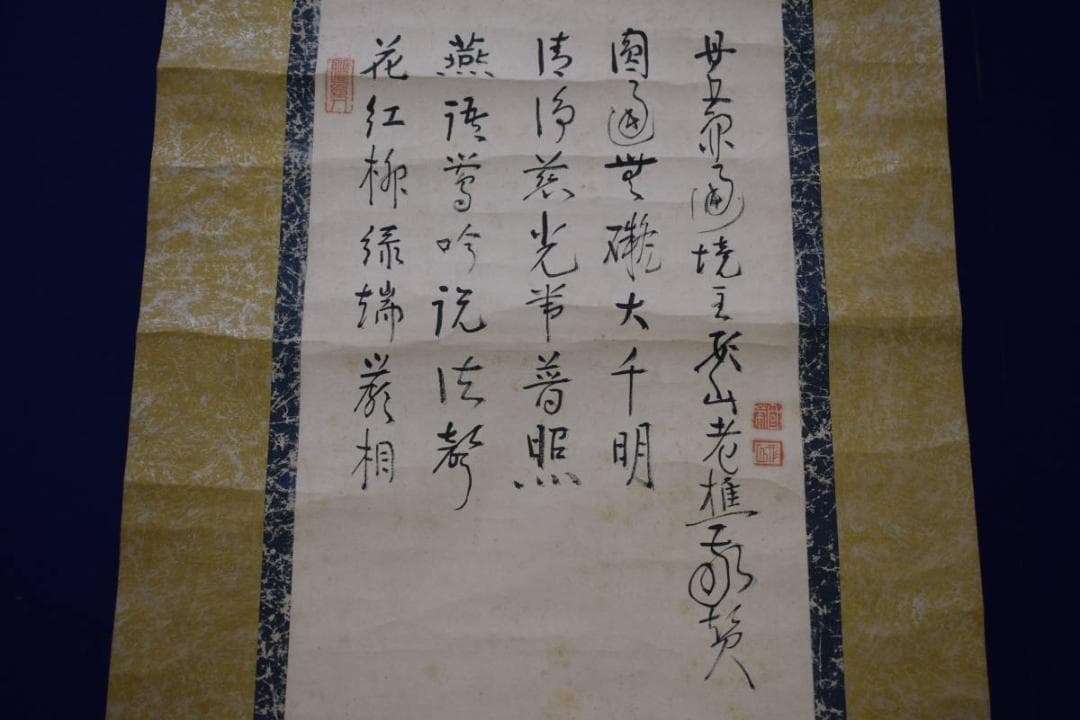 花紅柳緑端嚴相
燕語鶯吟説法聲
清淨慈光常普照
圓通無礙大千明
通境主山老樵敬賛